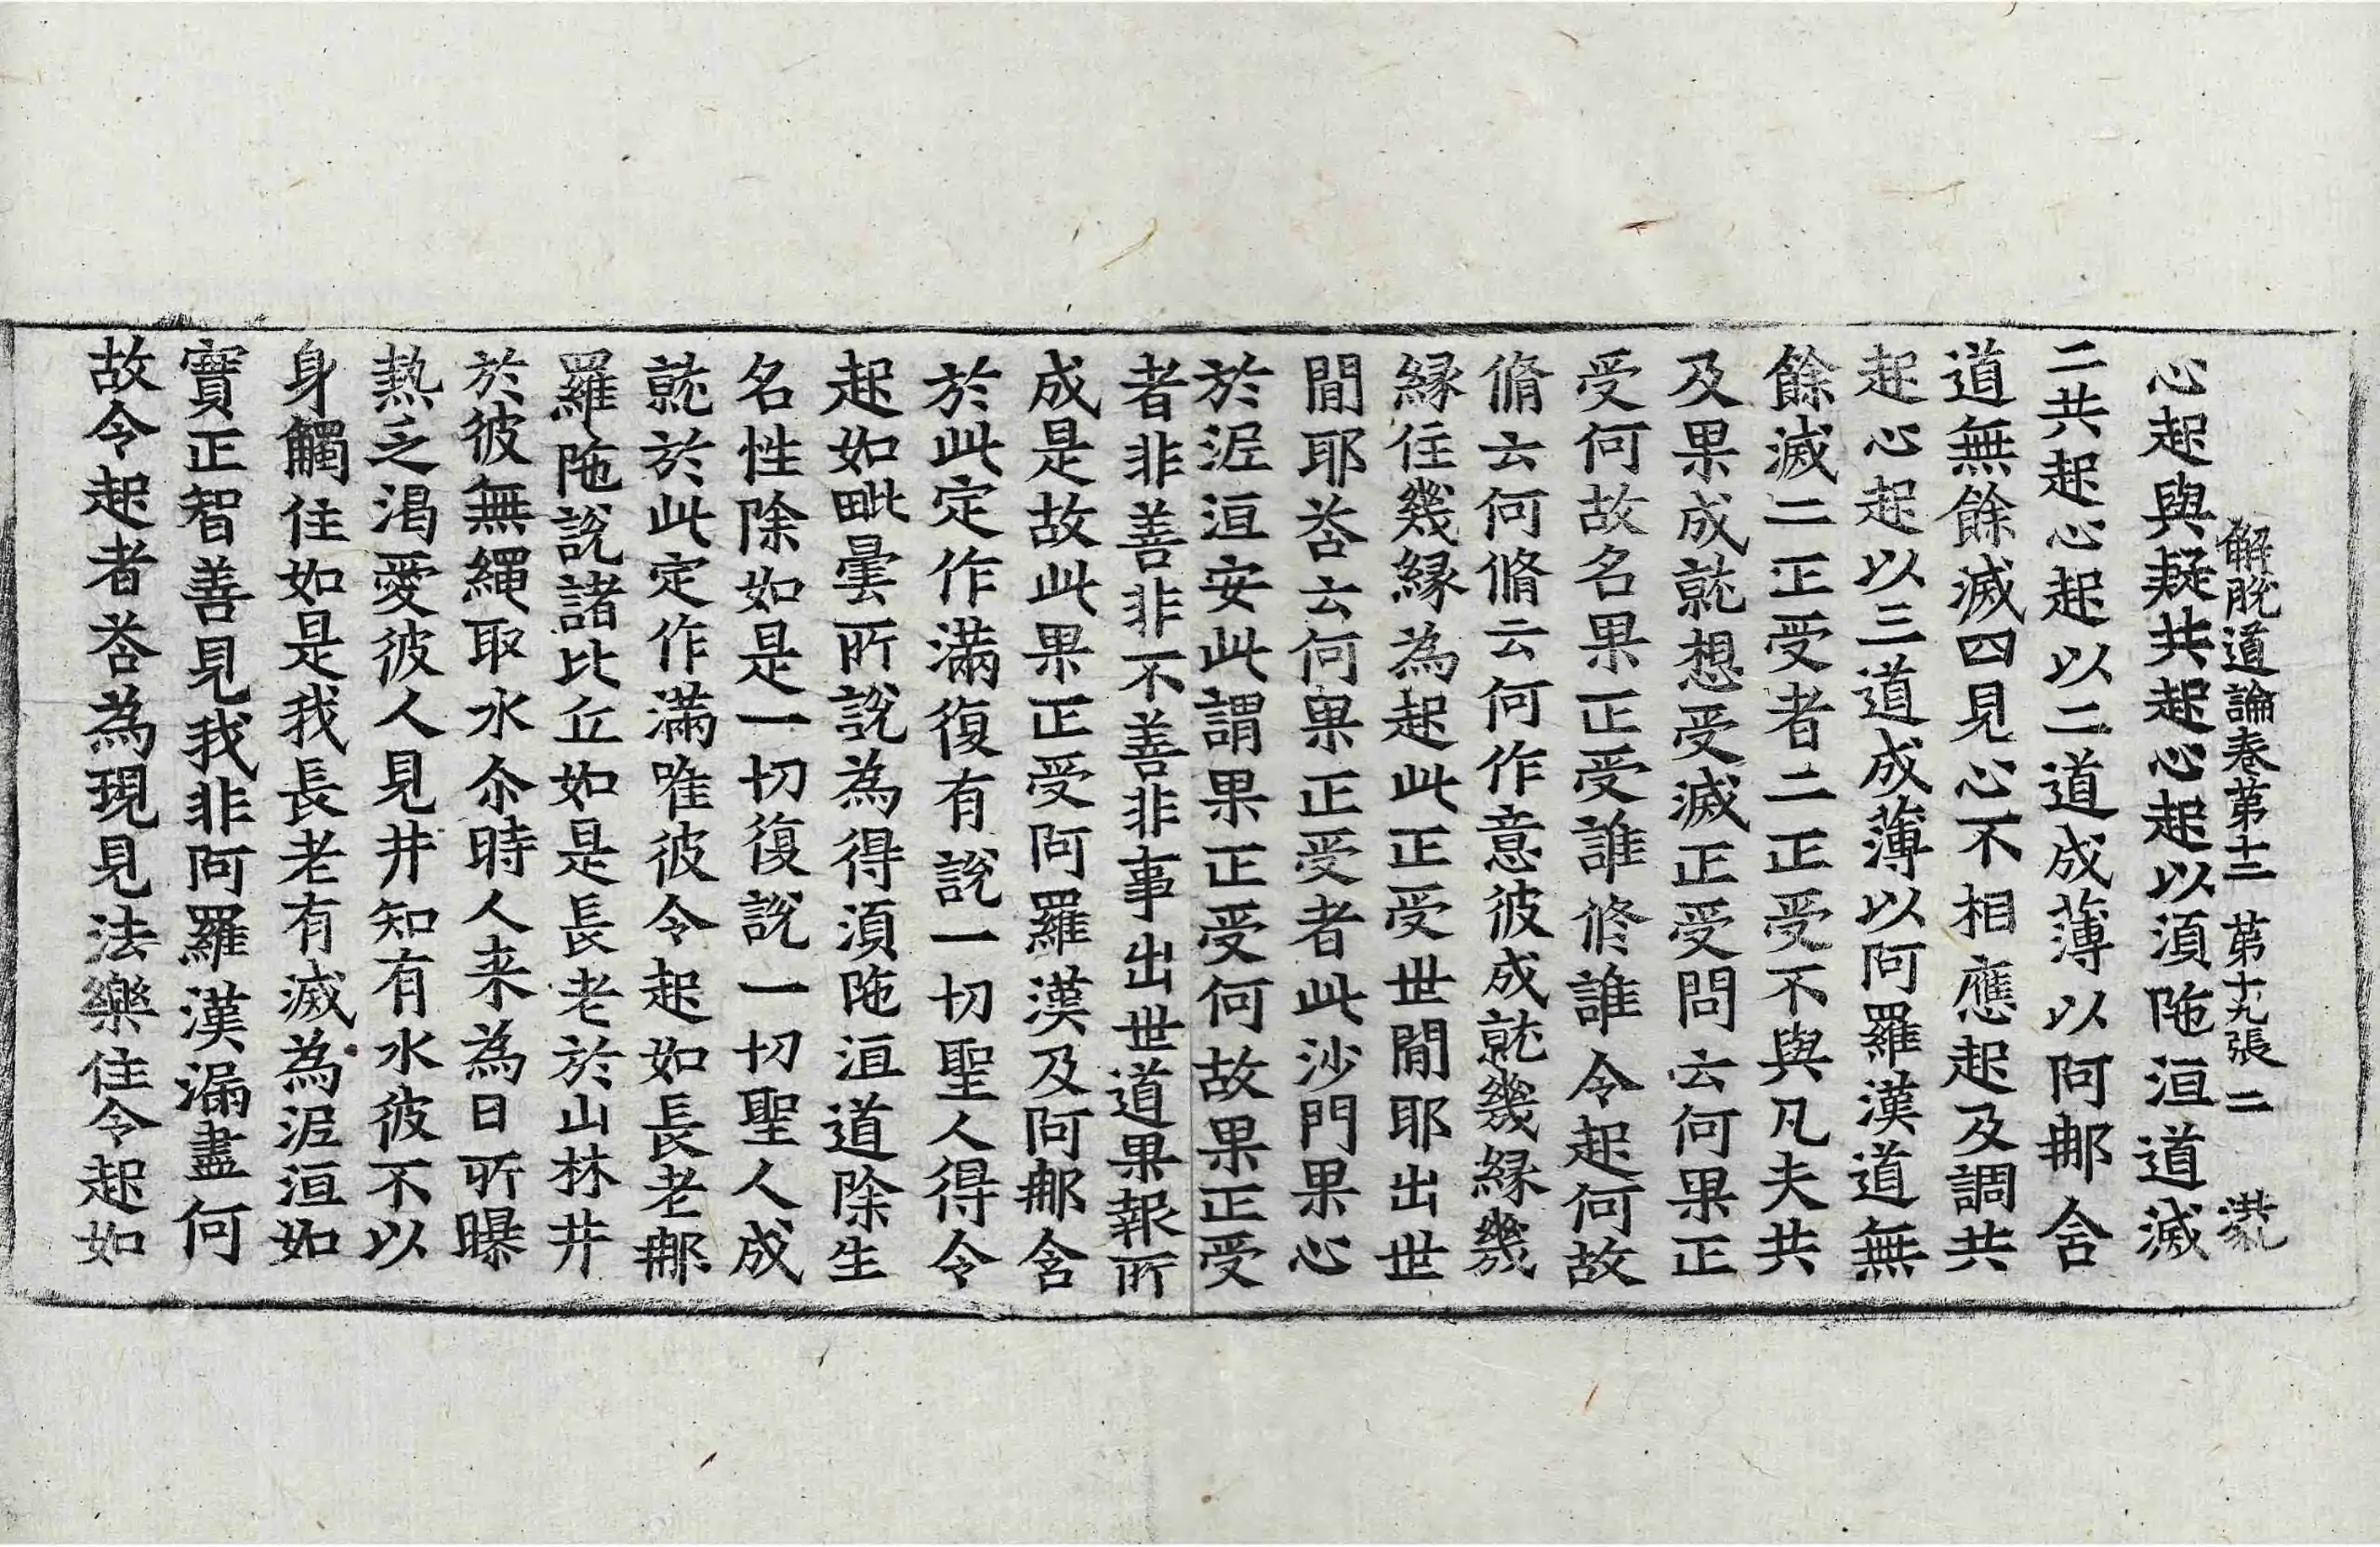 解脫道論卷第十二 第十九張 二
心起與疑共起心起以須陁洹道滅
二共起心起以二道成薄以阿那含
道無餘滅四見心不相應起及調共
起心起以三道成薄以阿羅漢道無
餘滅二正受者二正受不與凡夫共
及果成就想受滅正受問云何果正
受何故名果正受誰修誰令起何故
脩云何脩云何作意彼成就幾緣幾
緣住幾緣為起此正受世閒耶出世
閒耶荅云何果正受者此沙門果心
於泥洹安此謂果正受何故果正受
者非善非不善非事出世道果報所
成是故此果正受阿羅漢及阿那含
於此定作滿復有說一切聖人得令
起如毗曇所說為得須陁洹道除生
名性除如是一切復說一切聖人成
就於此定作滿唯彼令起如長老那
羅陁說諸比丘如是長老於山林井
於彼無繩取水尒時人来為日所曝
熱乏渴愛彼人見井知有水彼不以
身觸住如是我長老有滅為泥洹如
實正智善見我非阿羅漢漏盡何
故令起者荅為現見法樂住令起如